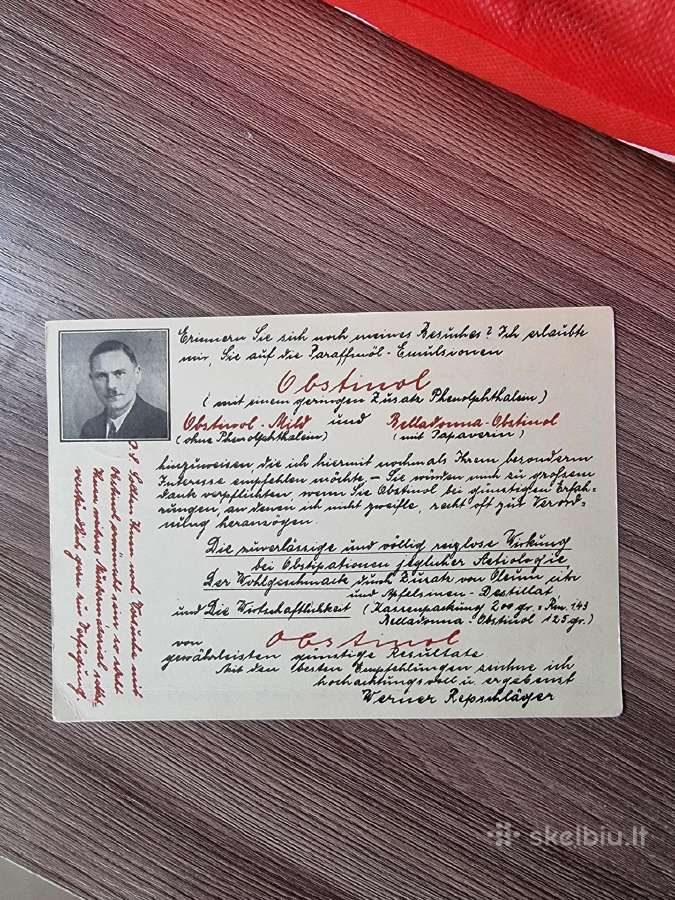 Erinnern Sie sich noch meines Besuches? Ich erlaubte
mir, Sie auf die Paraffinöl-Emulsionen
Obstinol
(mit einem geringen Zusatz Phenolphthalein)
Obstinol-Mild und Belladonna-Obstinol
(ohne Phenolphthalein) (mit Papaverin)
hinzuweisen, die ich hiermit nochmals Ihrem besonderm
Interesse empfehlen möchte. – Sie würden mich zu grossem
Dank verpflichten, wenn Sie Obstinol bei günstigen Erfah-
rungen, an denen ich nicht zweifle, recht oft zur Verord-
nung heranzögen.
Die zuverlässige und völlig reizlose Wirkung
bei Obstipationen jeglicher Aetiologie,
Der Wohlgeschmack durch Zusatz von Oleum citr
und Apfelsinen-Destillat
und Die Wirtschaftlichkeit (Kassenpackung 200 gr. = Rm. 1.43
Belladonna-Obstinol 125 gr.)
von Obstinol
gewährleisten günstige Resultate
Mit den besten Empfehlungen zeichne ich
hochachtungsvoll u. ergebenst
Werner Repschläger
P.S. Sollten Ihnen noch Versuche mit
Obstinol erwünscht sein, so steht
Ihnen weiteres Mustermaterial selbst-
verständlich gern zur Verfügung
skelbiu.lt